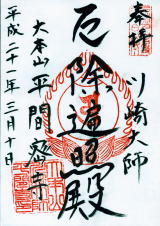 奉拝
川崎大師
厄除遍照殿
大本山平間寺
平成二十一年三月十日